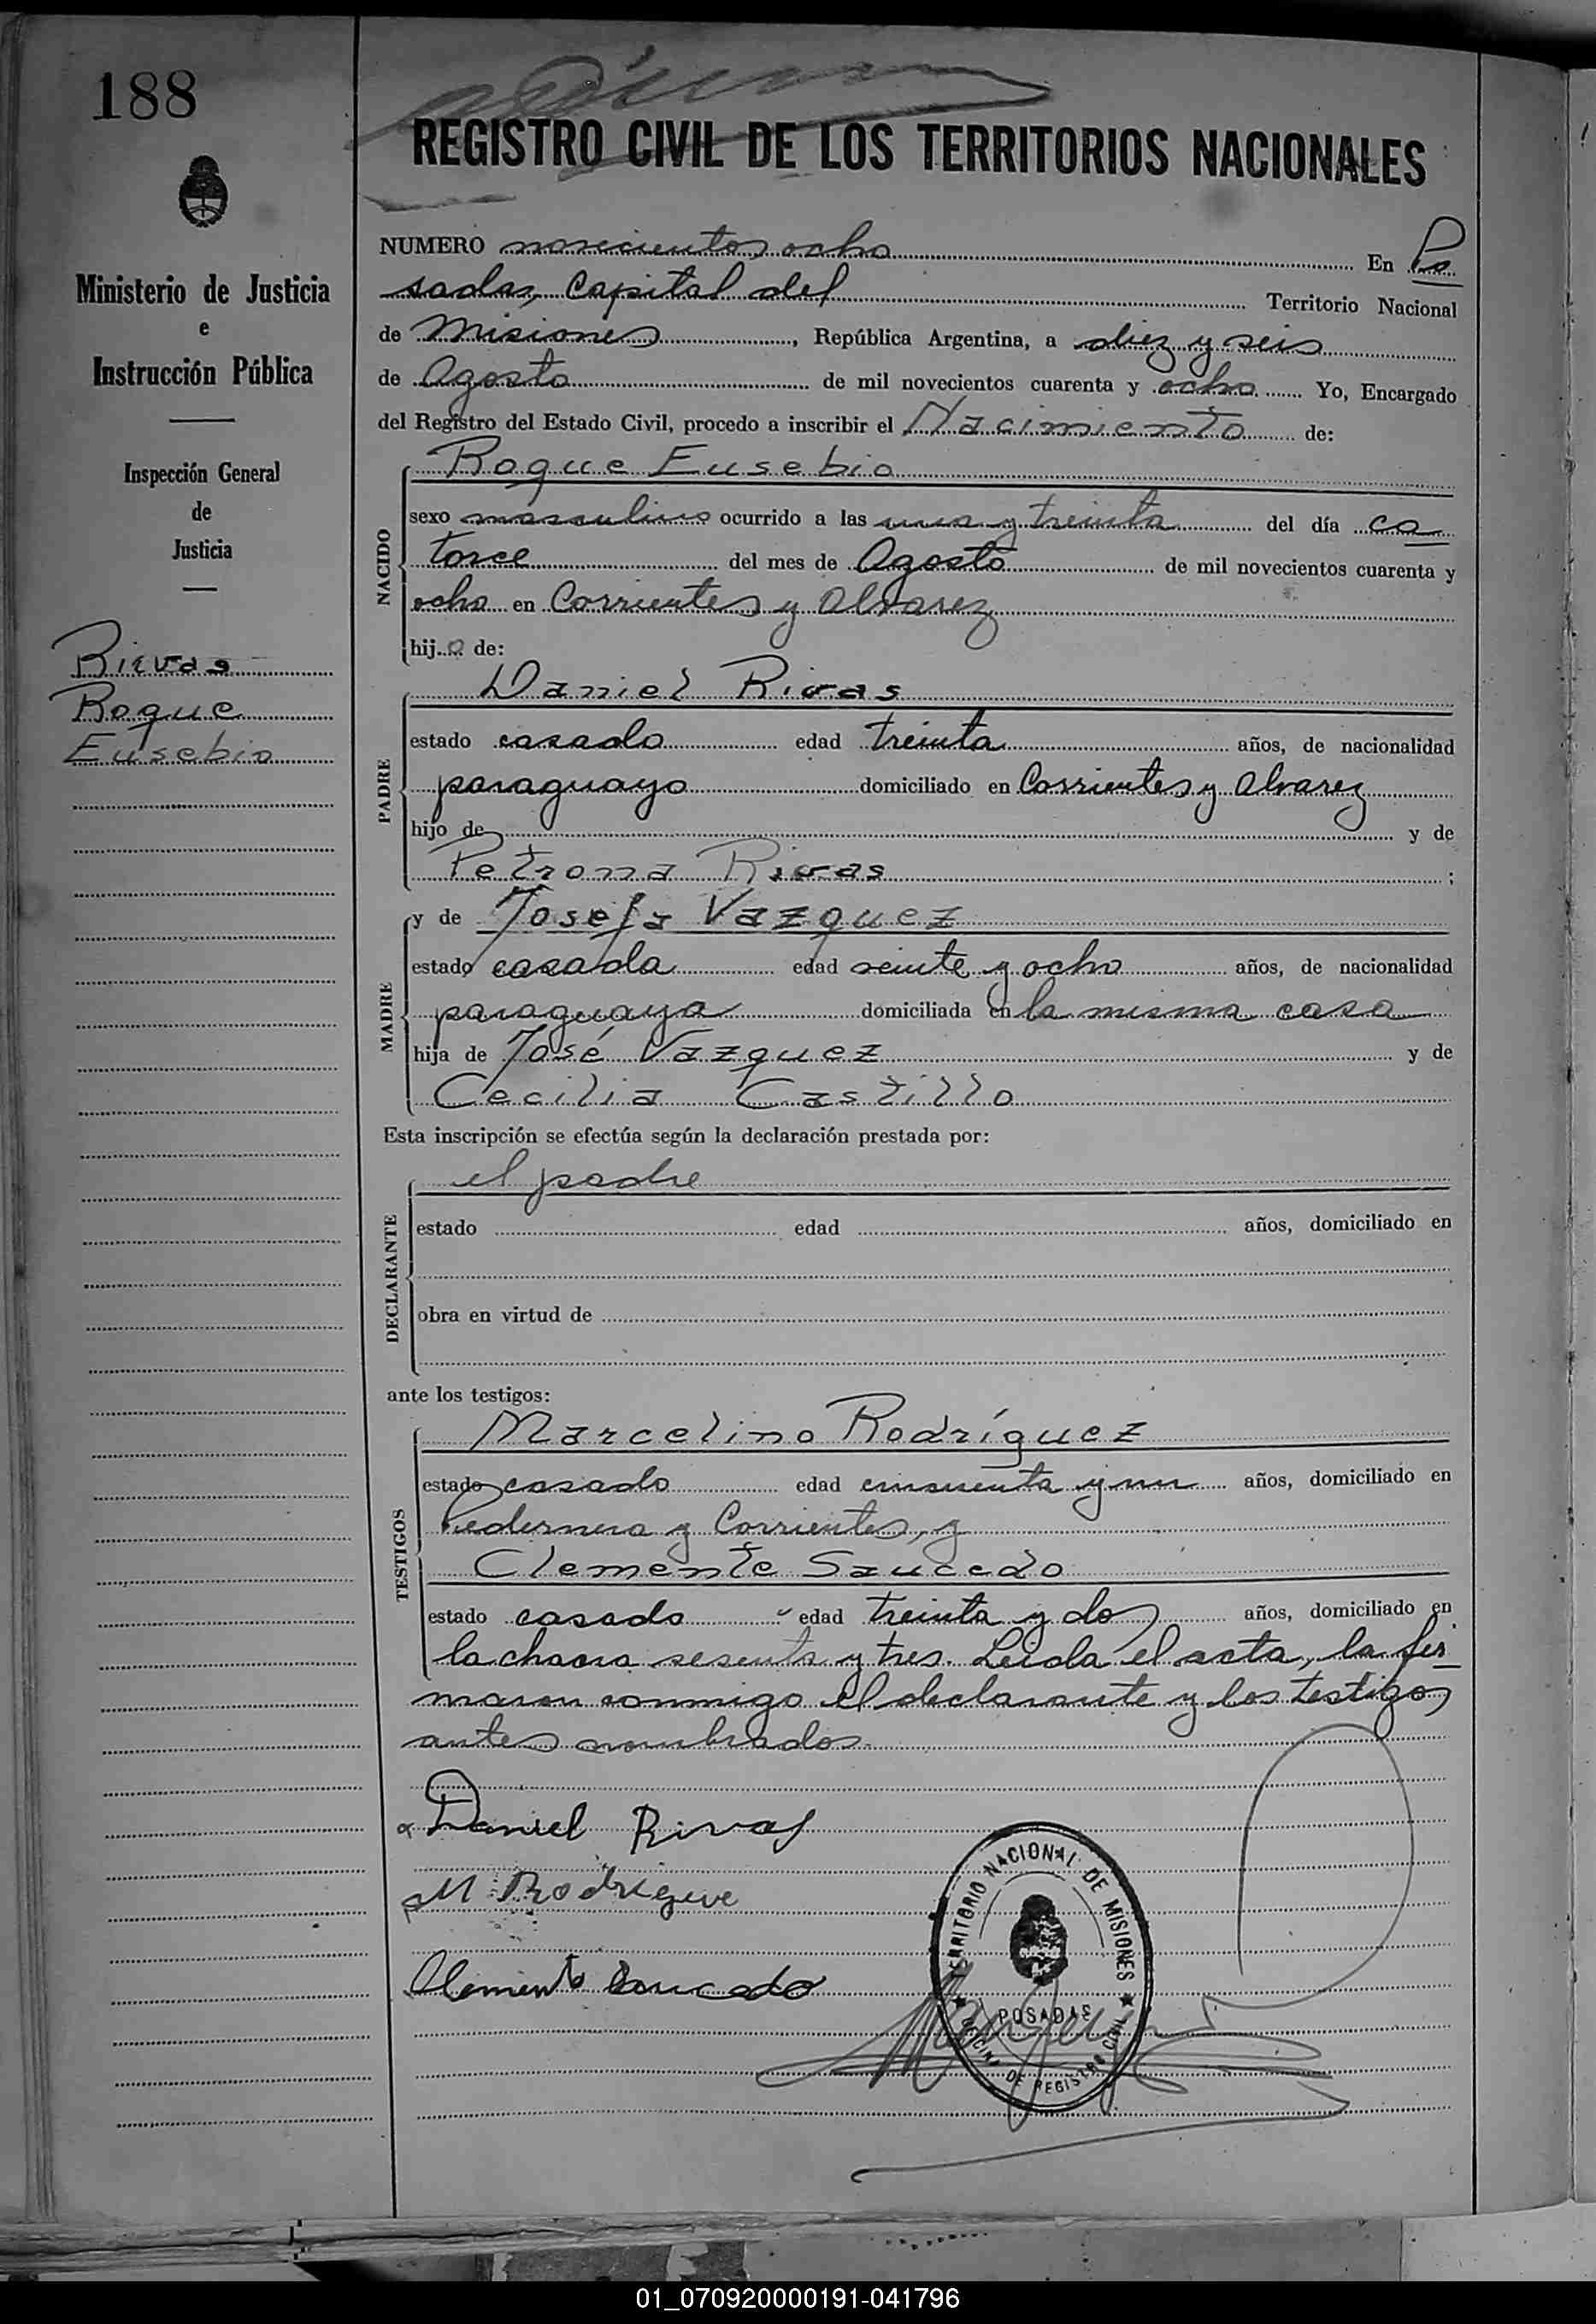 188
Ministerio de Justicia
e
Instrucción Pública
Inspección General
de
Justicia
Rievas
Roque
Eusebio
REGISTRO CIVIL DE LOS TERRITORIOS NACIONALES
NUMERO novecientos ocho En Po
sadas, Capital del Territorio Nacional
de Misiones, República Argentina, a diez y seis
de Agosto de mil novecientos cuarenta y ocho Yo, Encargado
del Registro del Estado Civil, procedo a inscribir el Nacimiento de:
NACIDO
Roque Eusebio
sexo masculino ocurrido a las una y treinta del día ca
torce del mes de Agosto de mil novecientos cuarenta y
ocho en Corrientes y Alvarez
hijo de:
PADRE
Daniel Rivas
estado casado edad treinta años, de nacionalidad
paraguayo domiciliado en Corrientes y Alvarez
hijo de y de
Petrona Rivas ;
MADRE
y de Josefa Vazquez
estado casada edad veinte y ocho años, de nacionalidad
paraguaya domiciliada en la misma casa
hija de José Vazquez y de
Cecilia Castillo
Esta inscripción se efectúa según la declaración prestada por:
DECLARANTE
el padre
estado edad años, domiciliado en
obra en virtud de
ante los testigos:
TESTIGOS
Marcelino Rodríguez
estado casado edad cincuenta y un años, domiciliado en
Pedernera y Corrientes, y
Clemente Saucedo
estado casado edad treinta y dos años, domiciliado en
la chacra sesenta y tres. Leida el acta, la fir
maron conmigo el declarante y los testigos
antes nombrados.
Daniel Rivas
M Rodrigue
Clemente Saucedo
TERRITORIO NACIONAL DE MISIONES
POSADAS
OFICINA DE REGISTRO CIVIL
01_070920000191-041796